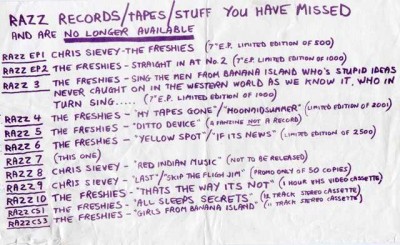 RAZZ RECORDS/TAPES/STUFF YOU HAVE MISSED
AND ARE NO LONGER AVAILABLE
RAZZ EP1 CHRIS SIEVEY-THE FRESHIES (7" E.P. LIMITED EDITION OF 500)
RAZZ EP2 THE FRESHIES-STRAIGHT IN AT NO.2 (7" E.P. LIMITED EDITION OF 1000)
RAZZ 3 THE FRESHIES-SING THE MEN FROM BANANA ISLAND WHO'S STUPID IDEAS
NEVER CAUGHT ON IN THE WESTERN WORLD AS WE KNOW IT, WHO IN
TURN SING..... (7" E.P. LIMITED EDITION OF 1000)
RAZZ 4 THE FRESHIES-"MY TAPES GONE"/"MOONMIDSUMMER" (LIMITED EDITION OF 2001)
RAZZ 5 THE FRESHIES-"DITTO DEVICE" (A FANZINE NOT A RECORD)
RAZZ 6 THE FRESHIES-"YELLOW SPOT"/"IF ITS NEWS" (LIMITED EDITION OF 2500)
RAZZ 7 (THIS ONE)
RAZZ 8 CHRIS SIEVEY-"RED INDIAN MUSIC" (NOT TO BE RELEASED)
RAZZ 9 CHRIS SIEVEY-"LAST"/"SKIP THE FLIGH JIM" (PROMO ONLY OF 50 COPIES)
RAZZ 10 THE FRESHIES-"THATS THE WAY ITS NOT" (1 HOUR VHS VIDEO CASSETTE)
RAZZ CS1 THE FRESHIES-"ALL SLEEPS SECRETS" (12 TRACK STEREO CASSETTE)
RAZZ CS3 THE FRESHIES-"GIRLS FROM BANANA ISLAND" (11 TRACK STEREO CASSETTE)